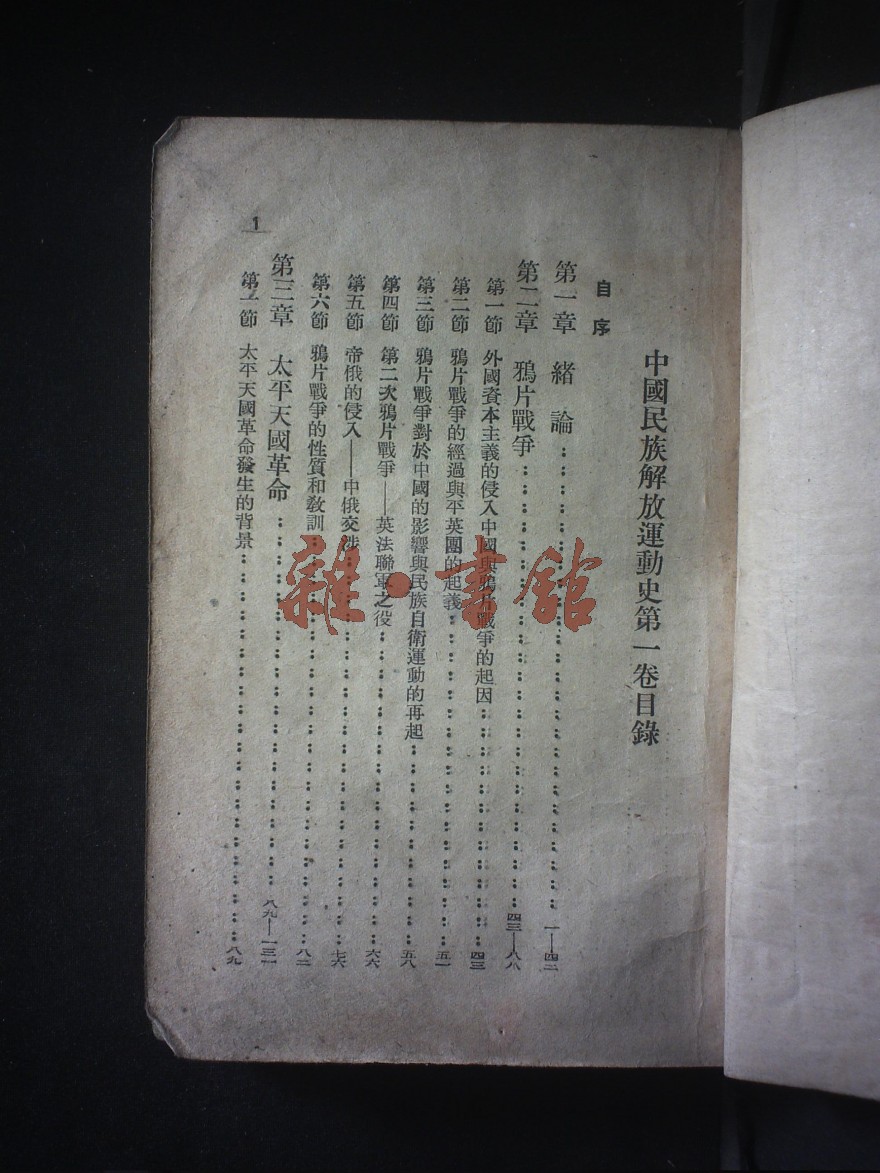 中國民族解放運動史第一卷目錄
自序
第一章 緒論……一—四二
第二章 鴉片戰爭……四三—八八
第一節 外國資本主義的侵入中國與鴉片戰爭的起因……四三
第二節 鴉片戰爭的經過與平英團的起義……五一
第三節 鴉片戰爭對於中國的影響與民族自衛運動的再起……五八
第四節 第二次鴉片戰爭——英法聯軍之役……六六
第五節 帝俄的侵入——中俄交涉……七六
第六節 鴉片戰爭的性質和教訓……八二
第三章 太平天國革命……八九—一三一
第一節 太平天國革命發生的背景……八九
1
雜·書館